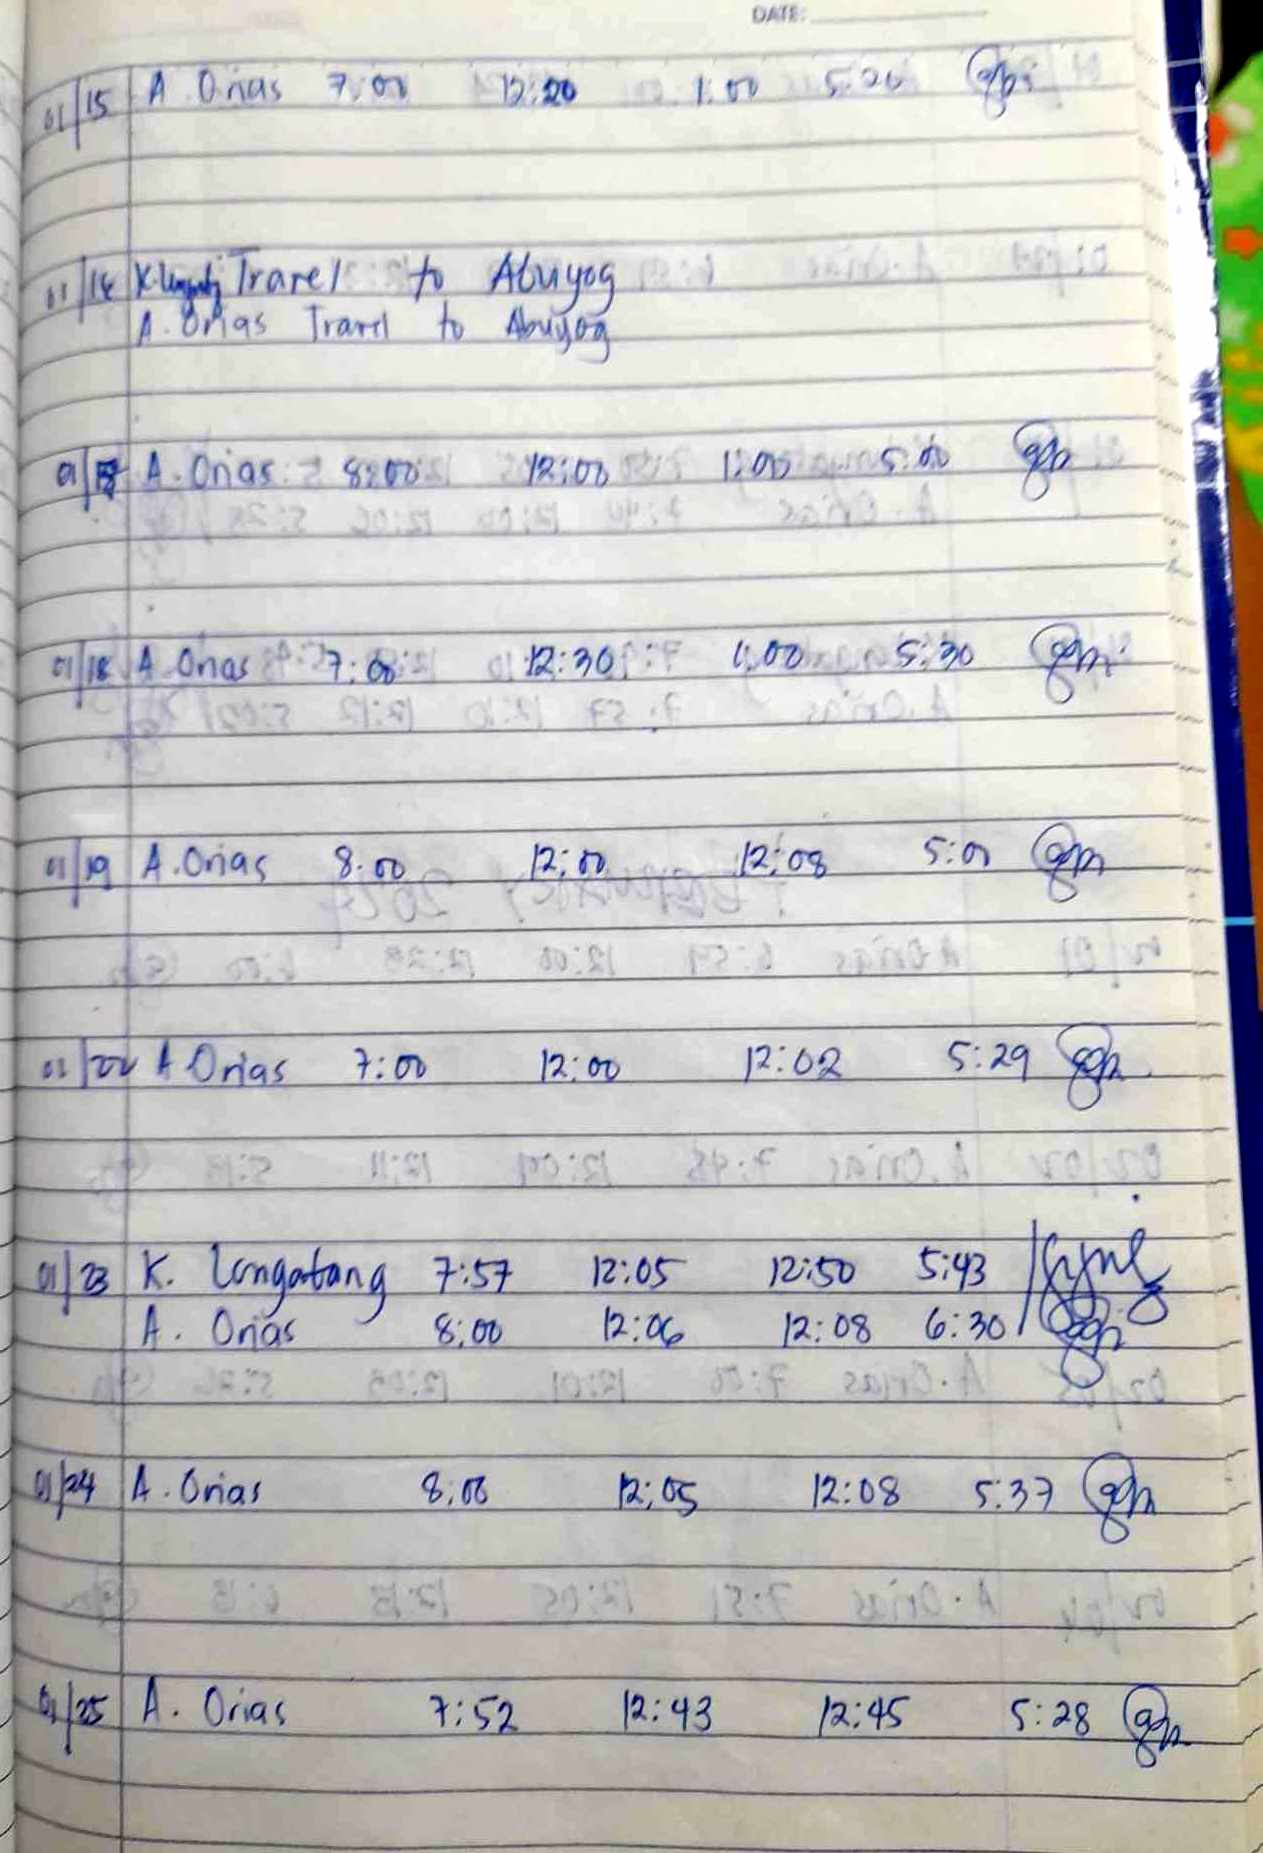 DATE:
01/15 A. Orias 7:00 12:20 1:00 5:20
01/16 Travel to Abuyog
A. Orias Travel to Abuyog
01/17 A. Orias 8:00 12:00 1:00 5:00
01/18 A. Orias 7:00 12:30 1:00 5:30
01/19 A. Orias 8:00 12:00 12:08 5:01
01/22 A Orias 7:00 12:00 12:02 5:29
01/23 K. Longatang 7:57 12:05 12:50 5:43
A. Orias 8:00 12:06 12:08 6:30
01/24 A. Orias 8:00 12:05 12:08 5:37
01/25 A. Orias 7:52 12:43 12:45 5:28